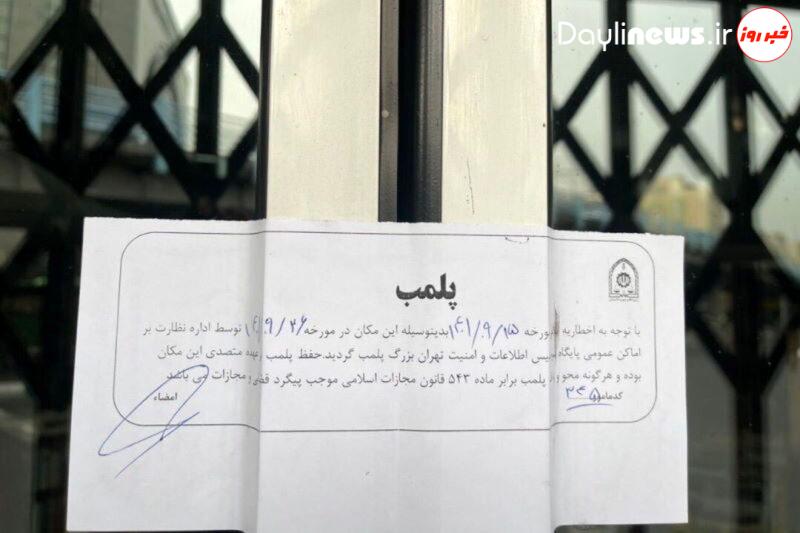 Daylinews.ir
خبر روز
پلمب
با توجه به اخطاریه مورخه ۱۴۰۱/۹/۲۵ بدینوسیله این مکان در مورخه ۱۴۰۱/۹/۲۶ توسط اداره نظارت بر
اماکن عمومی پایگاه پلیس اطلاعات و امنیت تهران بزرگ پلمب گردید.حفظ پلمب عهده متصدی این مکان
بوده و هرگونه محو پلمب برابر ماده ۵۴۳ قانون مجازات اسلامی موجب پیگرد و مجازات می باشد
کدمامور
امضاء